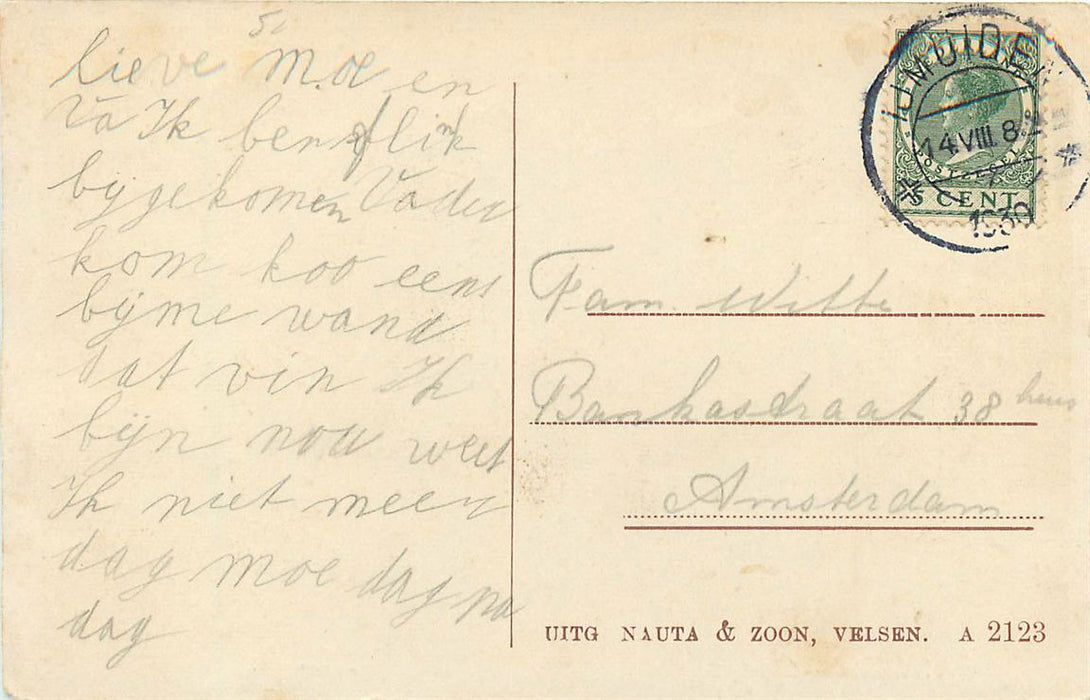 5
lieve Moe en
Va Ik ben flink
bijgekomen Vader
kom koo eens
bijme wand
dat vin Ik
bijn nou weet
Ik niet meer
dag moe dag pa
dag
IJMUIDEN
14.VIII. 8
1930
POSTZEGEL
5 CENT
Fam. Witte
Bankastraat 38 huis
Amsterdam
UITG NAUTA & ZOON, VELSEN. A 2123